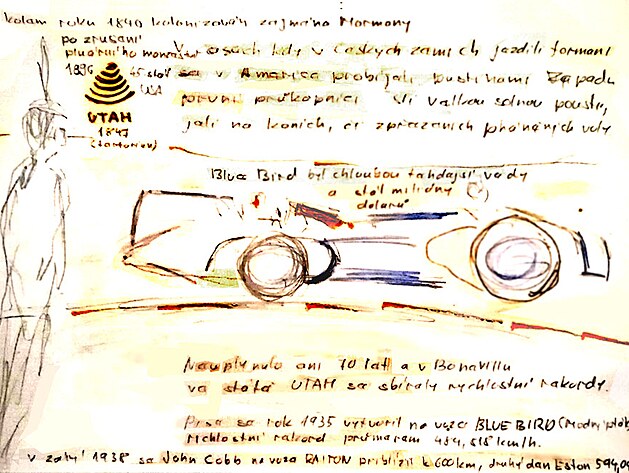 kolem roku 1840 kolonizován zejména Mormony
po zrušení
mnohoženství
1896 45 stát
USA
UTAH
1847
V časech kdy v českých zemích jezdili formani
se v Americe probíjeli pustinami Západu
první průkopníci Velkou solnou pouští,
jeli na koních, či zpřažených voly
Blue Bird byl chloubou tehdejší vědy
a stál miliony
dolarů
Neuplynulo ani 70 let a v Bonavillu
ve státě UTAH se sbíraly rychlostní rekordy.
rok 1935 vytvořil na voze BLUE BIRD (Modrý pták)
rychlostní rekord průměrem 484,518 km/h.
V září 1938 se John Cobb na voze RAILTON přiblížil k 600km, druhý den Eston 594,